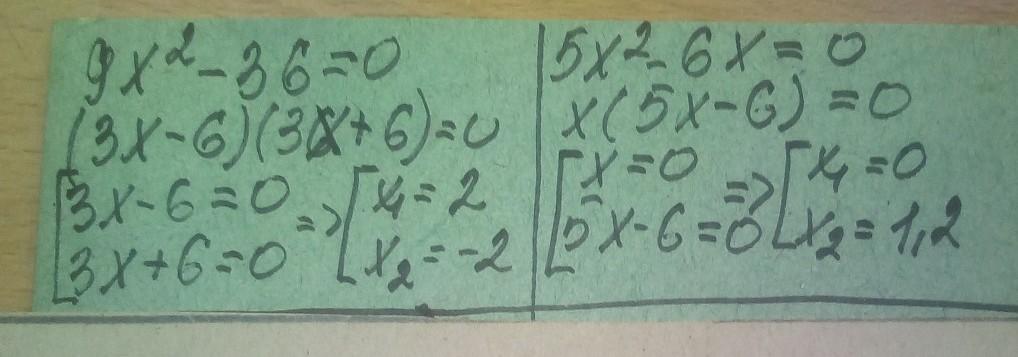 9x² - 36 = 0
(3x - 6)(3x + 6) = 0
[3x - 6 = 0 => [x₁ = 2
3x + 6 = 0 x₂ = -2
5x² - 6x = 0
x(5x - 6) = 0
[x = 0 => [x₁ = 0
5x - 6 = 0 x₂ = 1,2